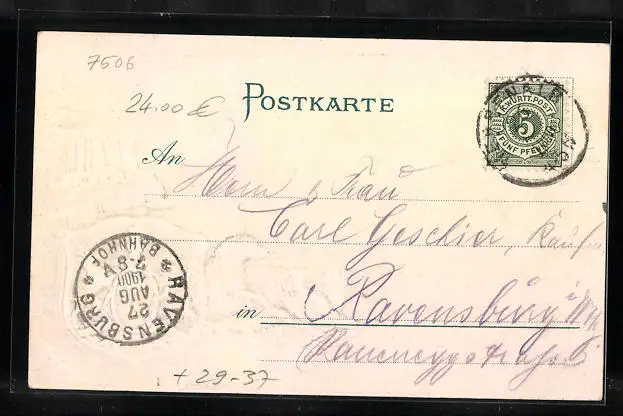 7506
24.00 €
POSTKARTE
K. WÜRTT. POST
5
FÜNF PFENNIG
An
Herrn & Frau
Carl Geschier, Kaufm
in Ravensburg i/W
RAVENSBURG
27
AUG
1900
7-8 V
BAHNHOF
+ 29-37